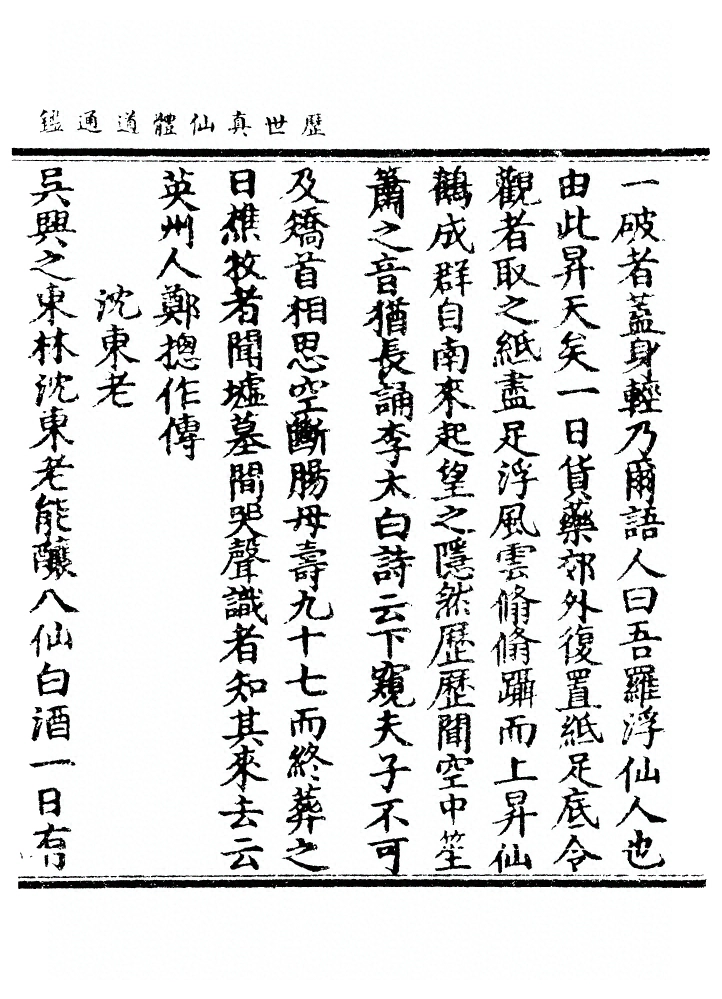 歷世真仙體道通鑑
一破者蓋身輕乃爾語人曰吾羅浮仙人也
由此昇天矣一日貨藥郊外復置紙足底令
觀者取之紙盡足浮風雲翛翛躡而上昇仙
鶴成群自南來起望之隱然歷歷聞空中笙
簫之音猶長誦李太白詩云下窺夫子不可
及矯首相思空斷腸母壽九十七而終葬之
日樵牧者聞墟墓間哭聲識者知其來去云
英州人鄭揔作傳
沈東老
吳興之東林沈東老能釀八仙白酒一日有